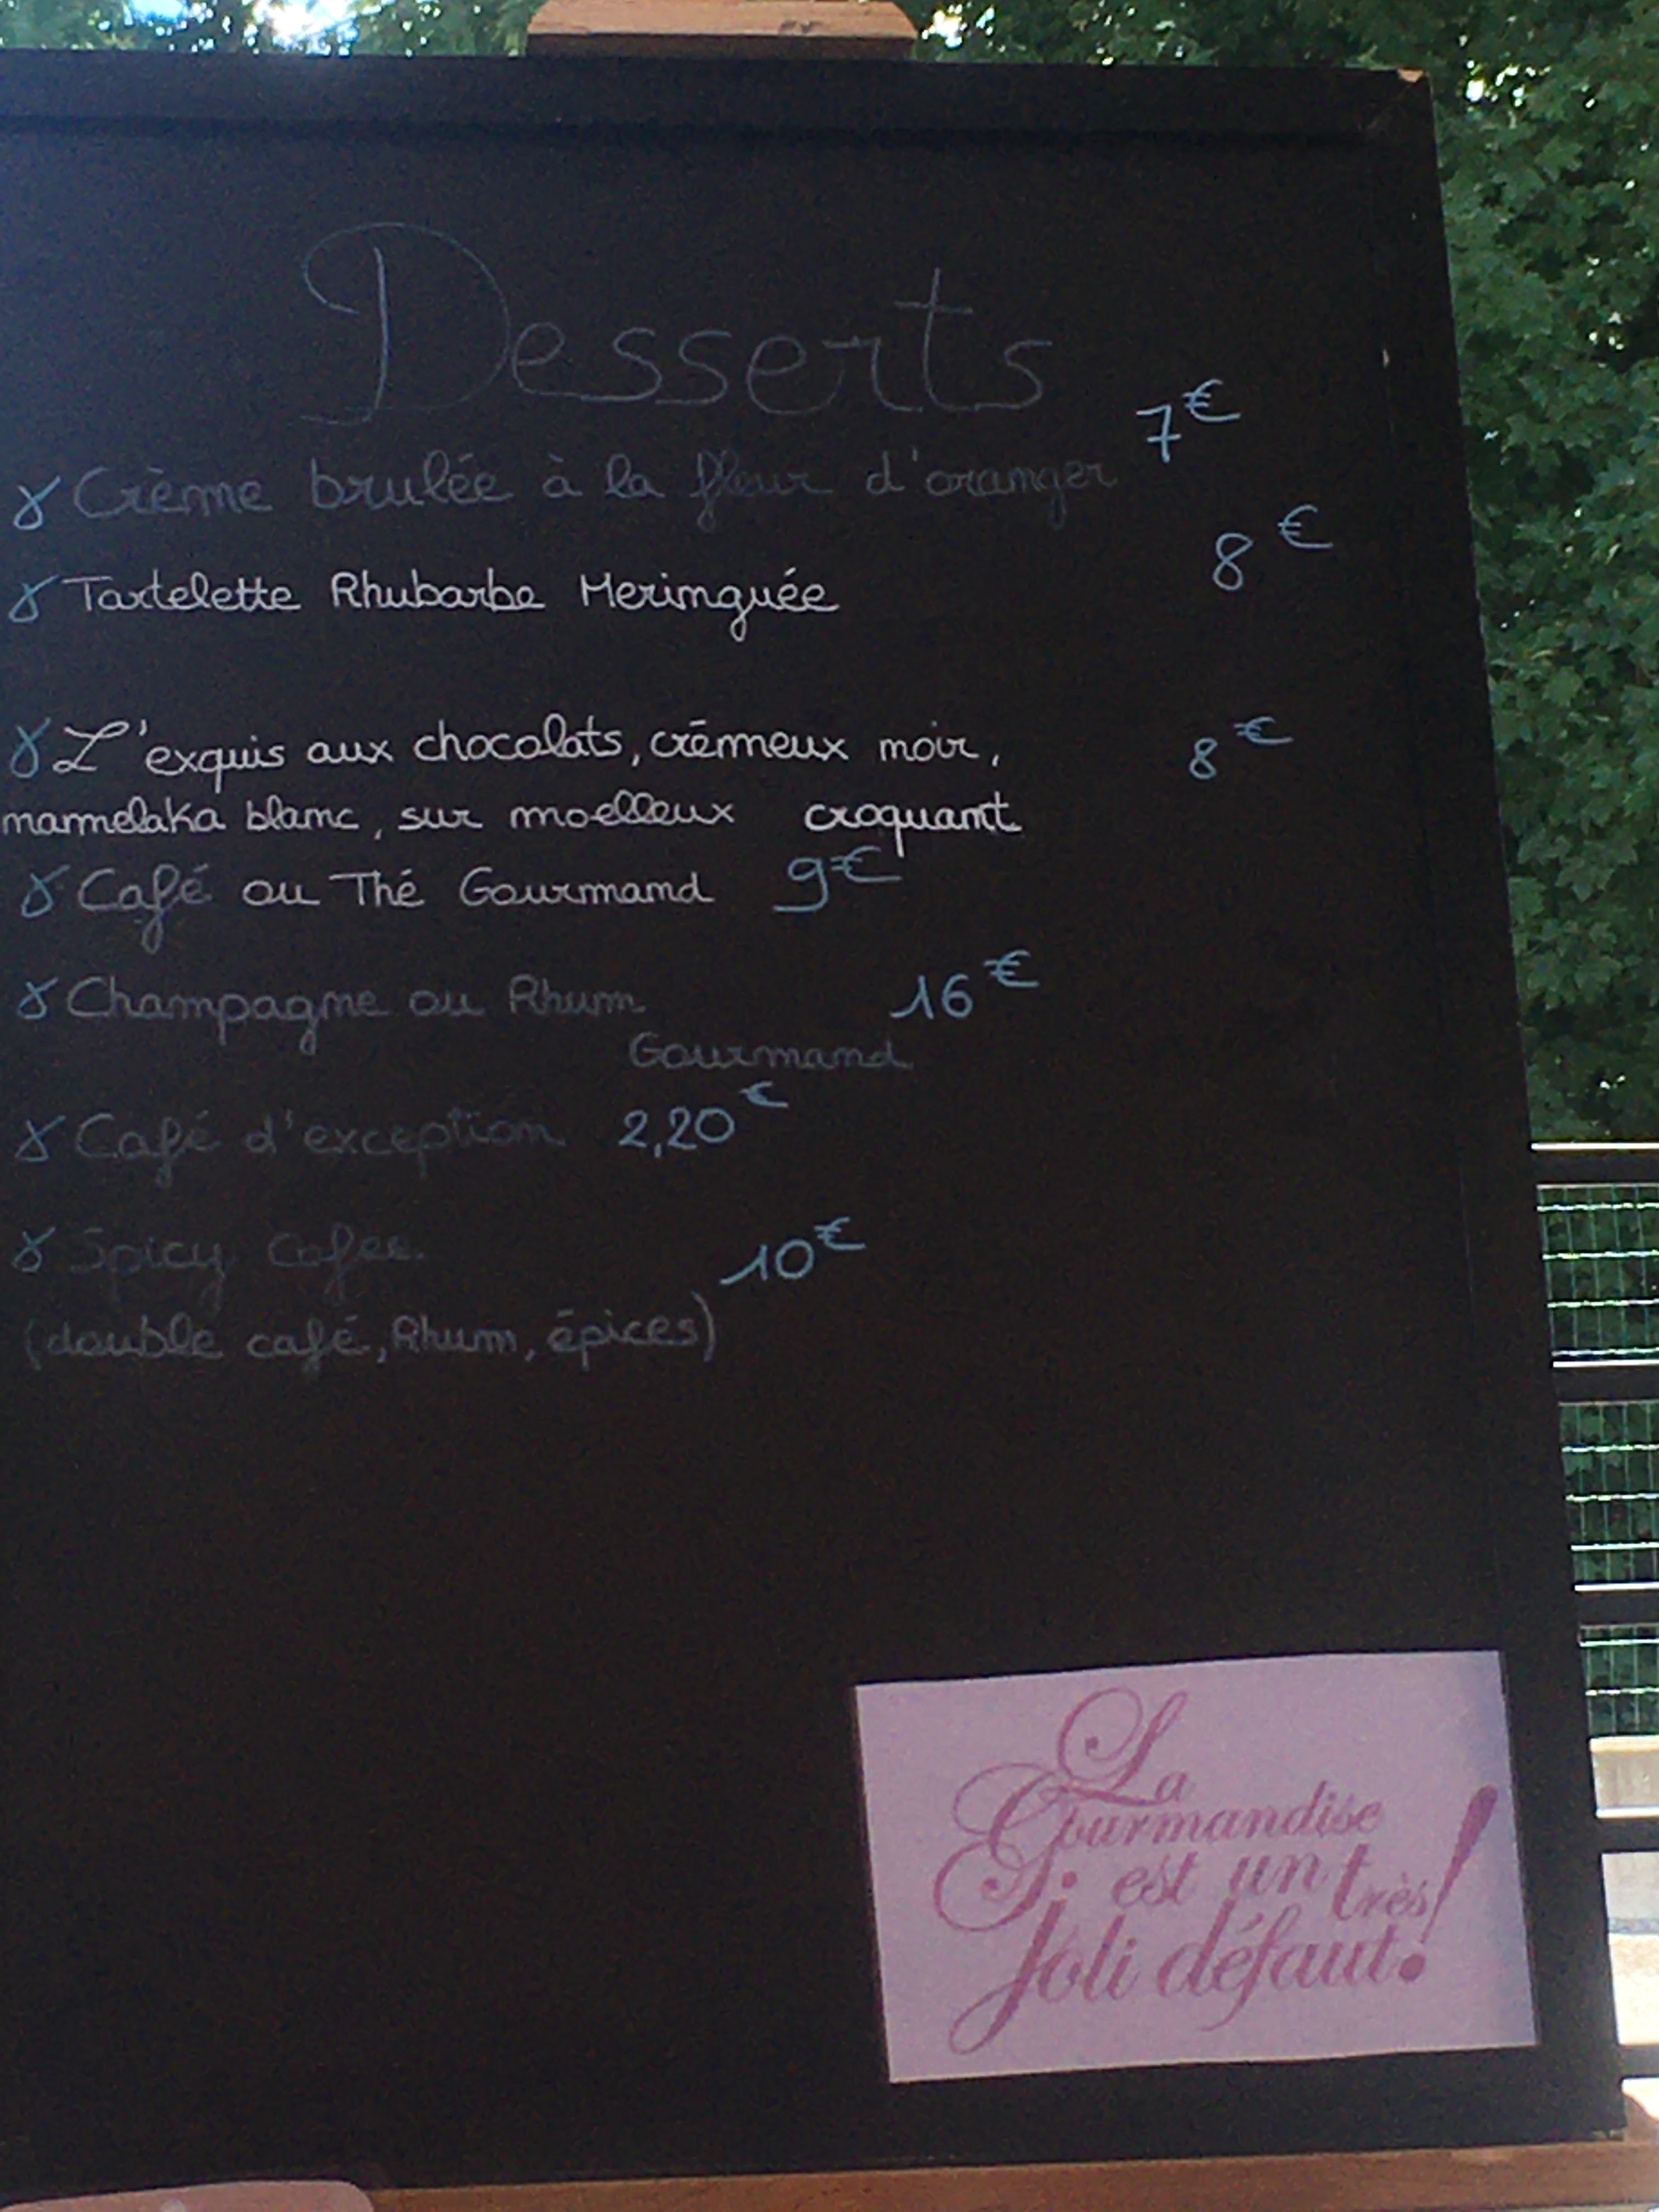 Desserts
Crème brulée à la fleur d'oranger 7€
Tartelette Rhubarbe Meringuée 8€
L'exquis aux chocolats, crémeux noir, 8€
namelaka blanc, sur moelleux croquant
Café ou Thé Gourmand 9€
Champagne ou Rhum 16€
Gourmand
Café d'exception 2,20€
Spicy Cafee 10€
(double café, Rhum, épices)
La
Gourmandise
est un très
Joli défaut!